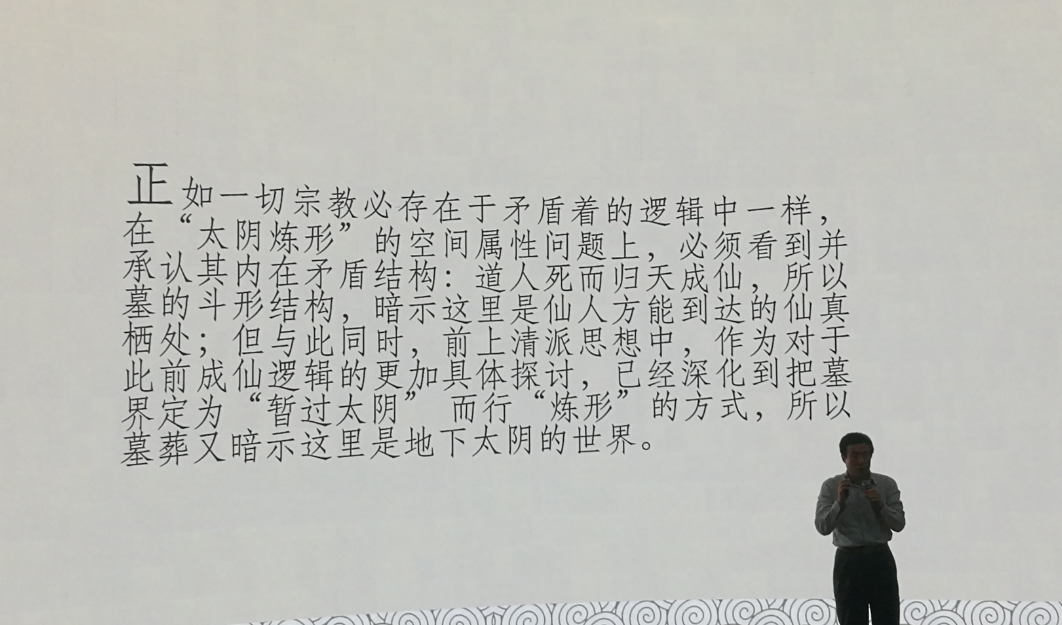 正如一切宗教必存在于矛盾着的逻辑中一样，
在“太阴炼形”的空间属性问题上，必须看到并
承认其内在矛盾结构：道人死而归天成仙，所以
墓的斗形结构，暗示这里是仙人方能到达的仙真
栖处；但与此同时，前上清派思想中，作为对于
此前成仙逻辑的更加具体探讨，已经深化到把墓
界定为“暂过太阴”而行“炼形”的方式，所以
墓葬又暗示这里是地下太阴的世界。